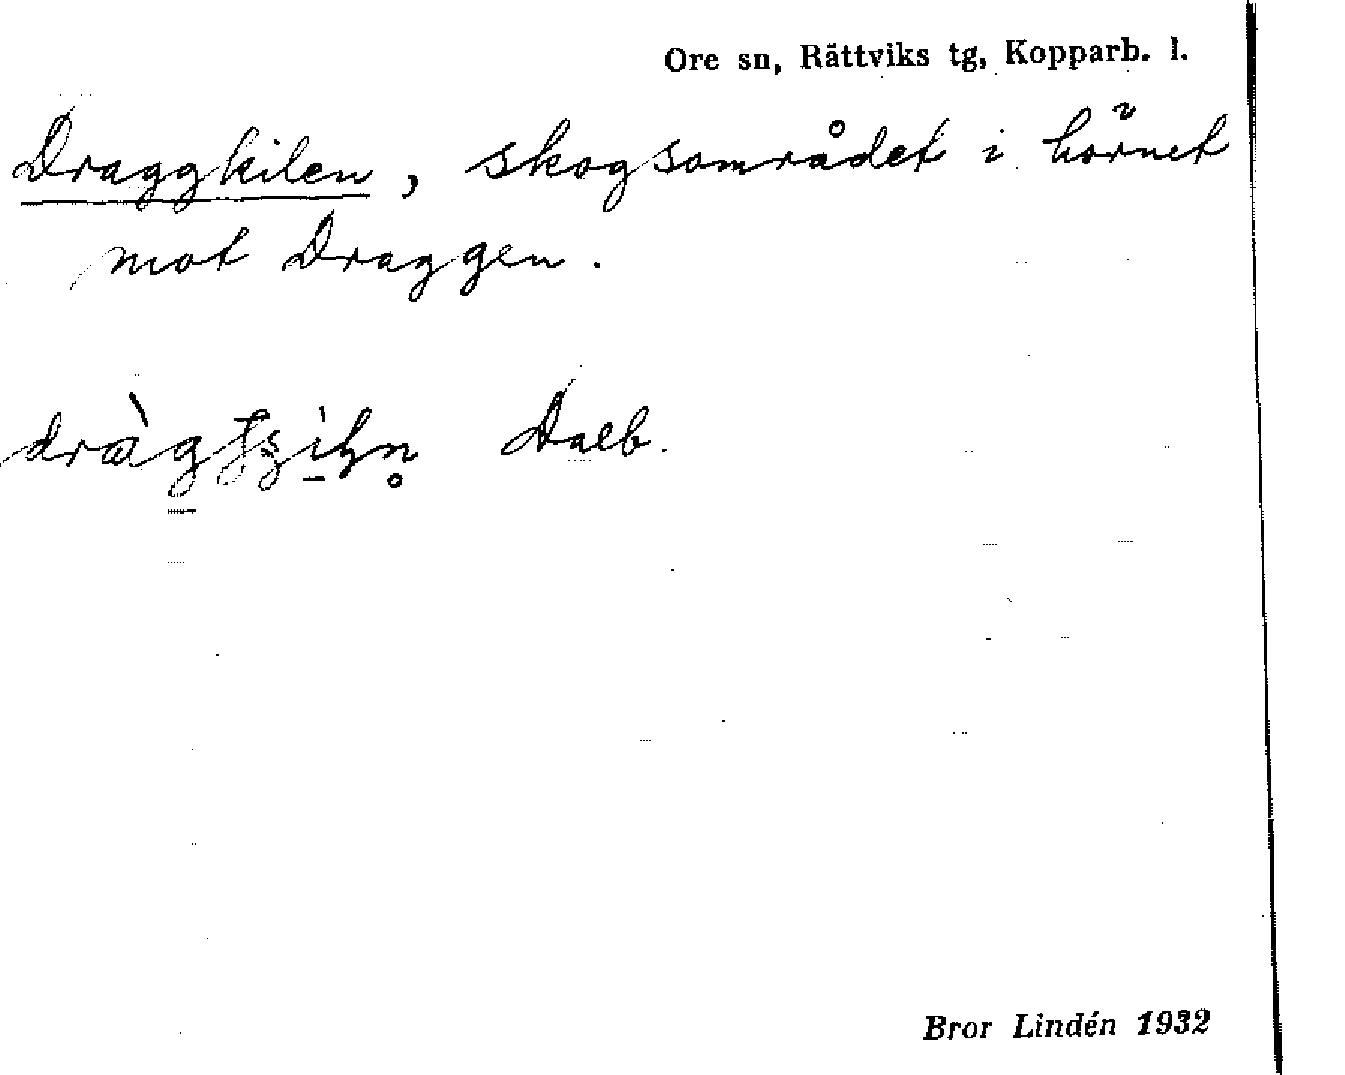 Ore sn, Rättviks tg, Kopparb. l.
Draggkilen, skogsområdet i hörnet
mot Draggen.
Dalb.
Bror Lindén 1932